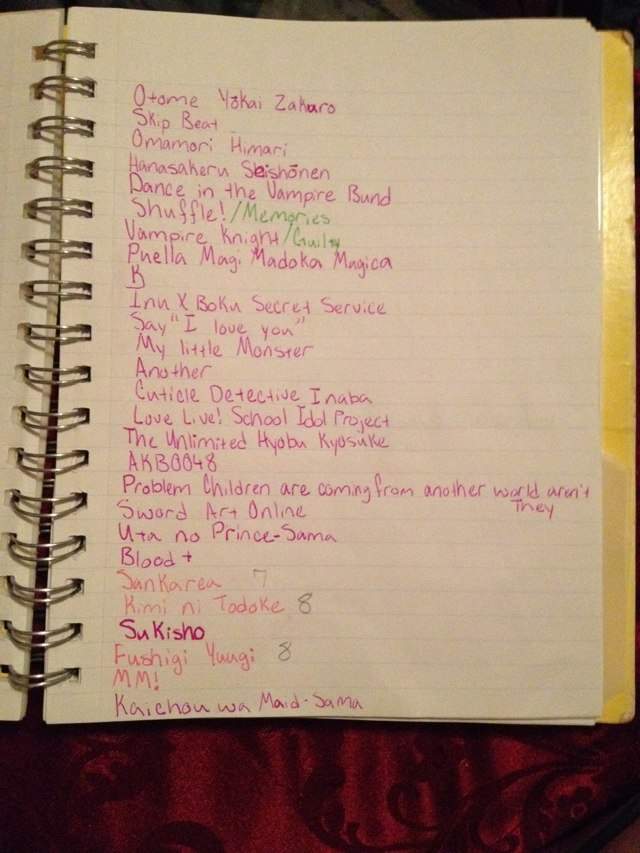 Otome Yōkai Zakuro
Skip Beat
Omamori Himari
Hanasakeru Seishōnen
Dance in the Vampire Bund
Shuffle!/Memories
Vampire Knight/Guilty
Puella Magi Madoka Magica
K
Inu X Boku Secret Service
Say "I love you"
My little Monster
Another
Cuticle Detective Inaba
Love Live! School Idol Project
The Unlimited Hyobu Kyosuke
AKB0048
Problem Children are coming from another world aren't
They
Sword Art Online
Uta no Prince-Sama
Blood +
Sankarea 7
Kimi ni Todoke 8
Sukisho
Fushigi Yuugi 8
MM!
Kaichou wa Maid-Sama